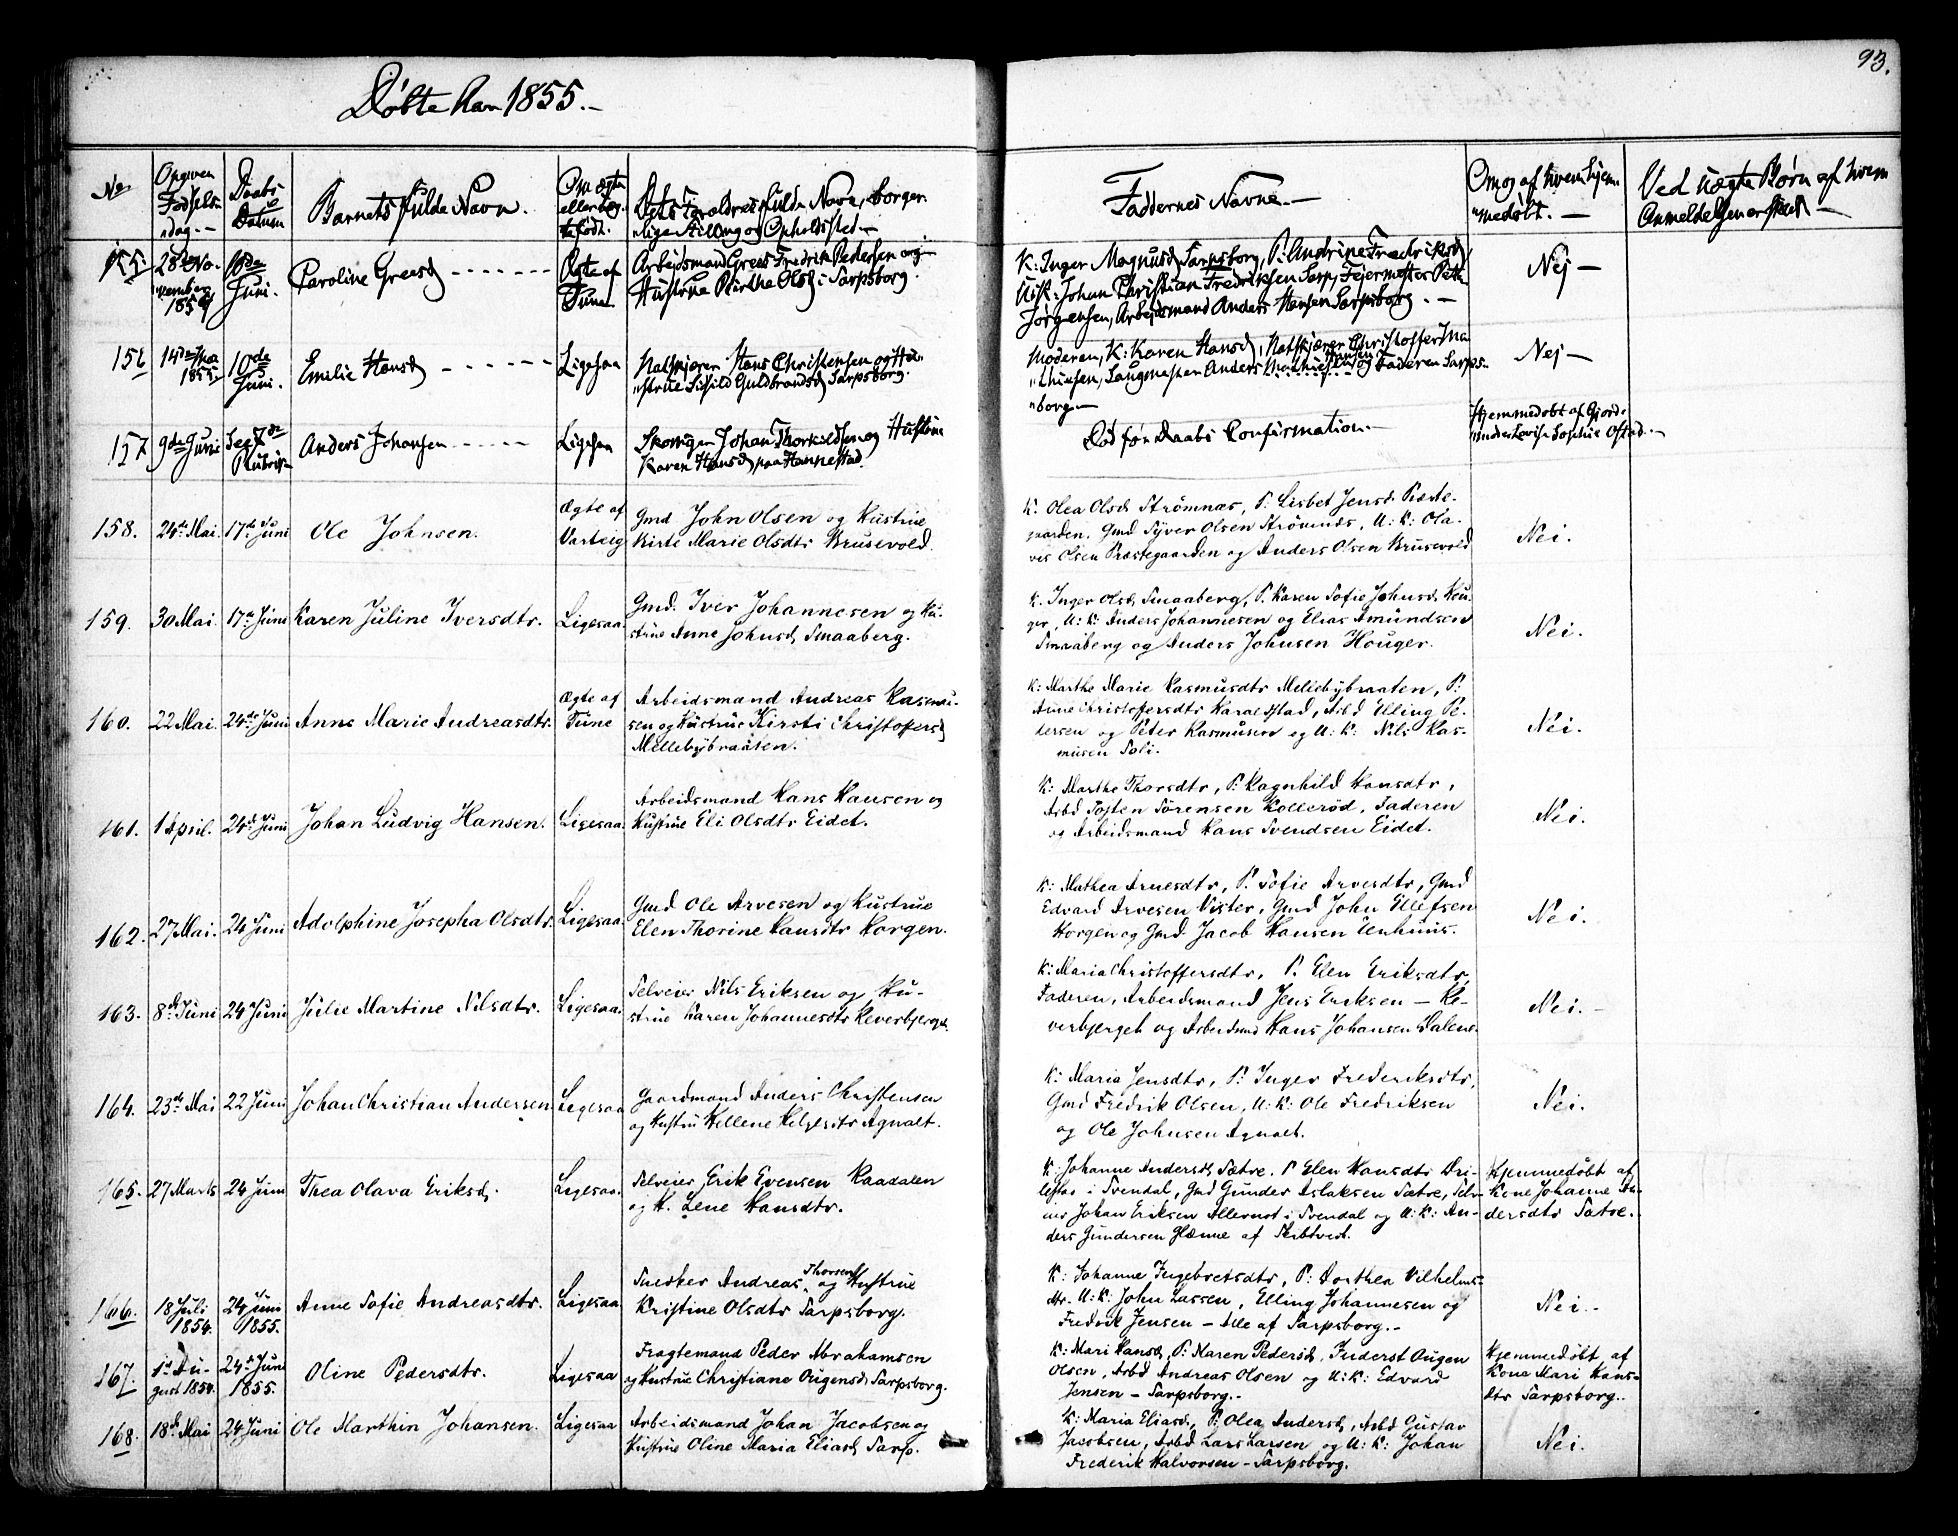 93.
Døbte Aar 1855.-
No
Opgiven Fødsels-dag.-
Daabs Datum
Barnets fulde Navn.
Om ægte eller uægte født.
Dets Forældres fulde Navn, borger-
"lige Stilling og Opholdssted.-
Faddernes Navne.-
Om og af hvem hjem-
"medøbt.-
Ved uægte Børn af hvem
Anmeldelsen er skeed.-
155 28de No-
vember
1854
10de
Juni.
Caroline Greesd
Ægte af
Tune
Arbejdsmand Grees Fredrik Pedersen og
Hustrue Birthe Olsd i Sarpsborg.
K: Inger Magnusd Sarpsborg, P: Andrine Fredriksd
UK: Johan Christian Fredriksen Sarp, Fejermester Peter
Jørgensen, Arbejdsmand Anders Hansen Sarpsborg.-
Nej-
156 14de Mai
1855
10de
Juni.
Emilie Hansd
Ligesaa
Natskjører Hans Christensen og Hu-
"strue Sissild Guldbrandsd Sarpsborg.
Moderen, K: Karen Hansd, Natskjører Christoffer Ma-
"thiesen, Laugmester Anders Hansen og Faderen Sarps-
"borg-
Nej-
157 9de Juni
Sep 7de
Rubrik
Anders Johansen
Ligesaa
Skoviger Johan Thorkildsen og Hustrue
Karen Hansd paa Hannestad.
Død før Daabs Confirmation.-
Hjemmedøbt af Gjord-
"moder Lovise Sophie Ofstad.-
158. 24de Mai. 17de Juni Ole Johnsen.
Ægte af
Varteig
Gmd John Olsen og Hustrue
Kirte Marie Olsdtr Brusevold.
K. Olea Olsd Strømnæs, P. Lisbet Jensd Præste-
gaarden. Gmd Syver Olsen Strømnæs, U: K: Ola-
ves Olsen Præstegaarden og Anders Olsen Brusevold
Nei.
159. 30 Mai. 17de Juni Karen Juline Iversdtr. Ligesaa.
Gmd. Iver Johannesen og Hu-
strue Anne Johnsd Smaaberg.
K. Inger Olsd Smaaberg, P. Karen Sofie Johnsd Hou-
ger, U: K: Anders Johannesen og Elias Amundsen
Smaaberg og Anders Johnsen Houger.
Nei.
160. 22 Mai. 24de Juni Anne Marie Andreasdtr.
Ægte af
Tune
Arbeidsmand Andreas Rasmu-
sen og Hustrue Kirsti Christoffersd
Mellebybraaten.
K: Marthe Marie Rasmusdtr Mellebybraaten, P:
Anne Christoffersdtr Haraldstad, Arbd Elling Pe-
dersen og Peter Rasmusen og U: K: Nils Ras-
musen Soli.
Nei.
161. 1 April. 24de Juni Johan Ludvig Hansen. Ligesaa.
Arbeidsmand Hans Hansen og
Hustrue Eli Olsdtr Eidet.
K: Marthe Thorsdtr, P: Ragnhild Hansdtr,
Arbd Tosten Sørensen Kollerød, Faderen
og Arbeidsmand Hans Svendsen Eidet.
Nei.
162. 27 Mai. 24 Juni Adolphine Josepha Olsdtr. Ligesaa.
Gmd Ole Arvesen og Hustrue
Elen Thorine Hansdtr Horgen.
K: Mathea Arnesdtr, P. Sofie Arvesdtr, Gmd
Edvard Arvesen Vister, Gmd John Ellefsen
Horgen og Gmd Jacob Hansen Enhuus.
Nei.
163. 8de Juni 24 Juni Julie Martine Nilsdtr. Ligesaa.
Selveier Nils Eriksen og Hu-
strue Karen Johannesdtr Reverbjerget.
K: Maria Christoffersdtr, P. Elen Eriksdtr,
Faderen, Arbeidsmand Jens Eriksen - Re-
verbjerget og Arbeidsmd Hans Johansen Dalene.
Nei.-
164. 23de Mai 22 Juni Johan Christian Andersen Ligesaa
Gaardmand Anders Christensen
og Hustru Hellene Helgesdtr Agnalt.
K: Maria Jensdtr, P: Inger Frederiksdtr,
Gmd Fredrik Olsen, U: K: Ole Fredriksen
og Ole Johnsen Agnalt.
Nei.
165. 27 Marts 24 Juni Thea Olava Eriksd. Ligesaa.
Selveier Erik Evensen Raadalen
og H. Lene Hansdtr.
K: Johanne Andersd Sætre. P Elen Hansdtr Dri-
lestad i Svendal, Gmd Gunder Aslaksen Sætre, Selv-
eier Johan Eriksen Allernot i Svendal og U: K: An-
ders Gundersen Glænne af Skibtvedt.
Hjemmedøbt af
Kone Johanne An-
dersdtr Sætre.
166. 18 Juli
1854.
24 Juni
1855.
Anne Sofie Andreasdtr. Ligesaa
Snedker Andreas Thorsen og Hustrue
Kristine Olsdtr Sarpsborg.
K: Johanne Ingebretsdtr, P: Dorthea Vilhelms-
dtr. U: K: John Lassen, Elling Johannesen og
Fredrik Jensen - Alle af Sarpsborg.-
Nei.-
167. 1ste Au-
gust 1854.
24de Juni
1855.
Oline Pedersdtr. Ligesaa
Fragtemand Peder Abrahamsen
og Hustrue Christiane Ougensd Sarpsborg.
K: Mari Hansd, P: Maren Pedersd, Inderst Ougen
Olsen, Arbd Andreas Olsen og U: K: Edvard
Jensen - Sarpsborg.-
Hjemmedøbt af
Kone Mari Hans-
dtr Sarpsborg.
168. 18de Mai 24 Juni Ole Marthin Johansen. Ligesaa
Arbeidsmand Johan Jacobsen og
Hustrue Oline Maria Eliasd Sarp.
K: Maria Eliasd, P: Olea Andersd, Arbd Gustav
Jacobsen, Arbd Lars Larsen og U: K: Johan
Frederik Halvorsen - Sarpsborg.
Nei.